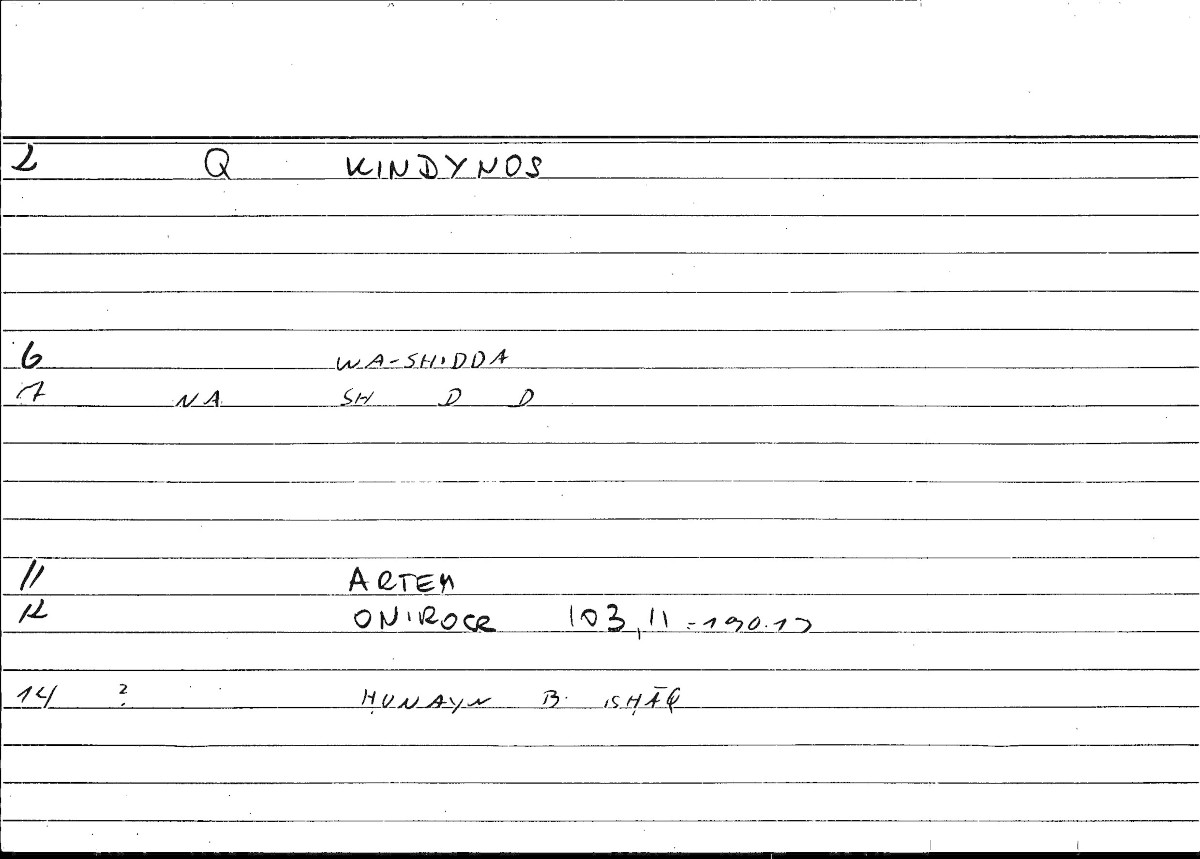 2 Q KINDYNOS
6 WA-SHIDDA
7 NA SH D D
11 ARTEM
12 ONIROCR 103,11 = 190.17
14 ? ḤUNAYN B. ISḤĀQ